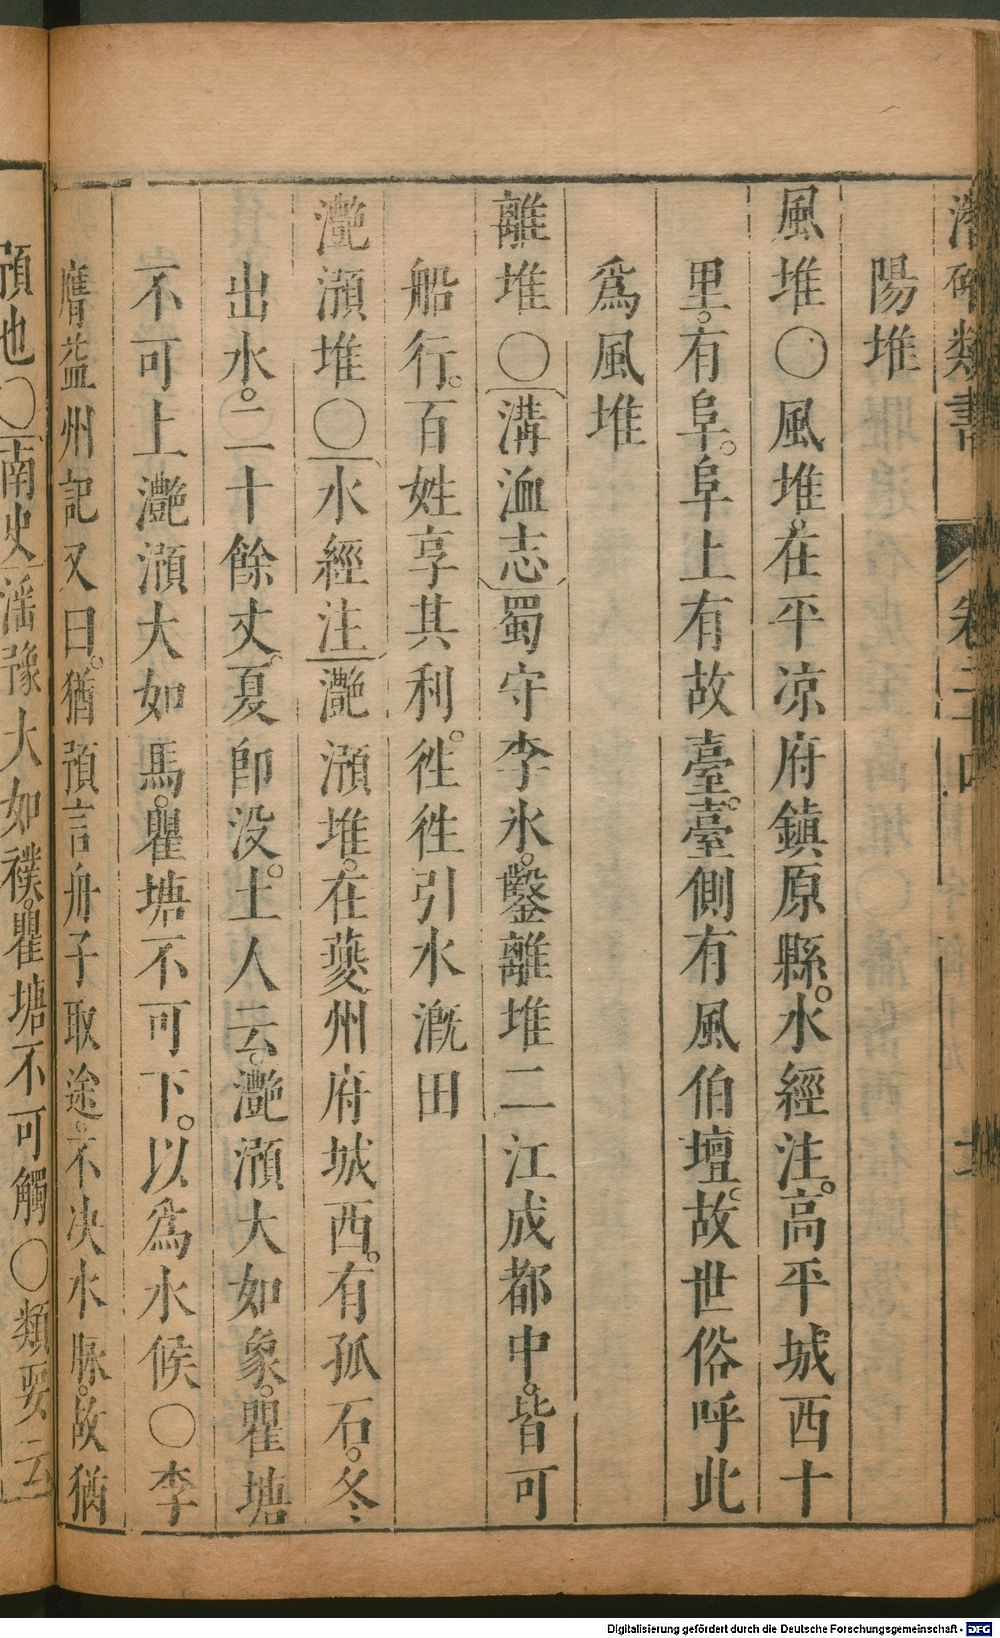 潛確類書 卷二十四
陽堆
風堆○風堆。在平凉府鎮原縣。水經注。高平城西十
里。有阜。阜上有故臺。臺側有風伯壇。故世俗呼此
爲風堆
離堆○溝洫志蜀守李氷。鑿離堆二江成都中。皆可
船行。百姓享其利。徃徃引水漑田
灔澦堆○水經注灔澦堆。在夔州府城西。有孤石。冬
出水。二十餘丈。夏即没。土人云。灔澦大如象。瞿塘
不可上灔澦大如馬。瞿塘不可下。以爲水候○李
膺益州記又曰。猶預言舟子取途。不决水脉。故猶
預也○南史滛豫大如襆。瞿塘不可觸○類要云
Digitalisierung gefördert durch die Deutsche Forschungsgemeinschaft - DFG